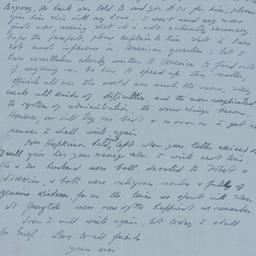 Anyway, the bank was told to send you £50 for him, please
give him this with my love. I won't send any more
just now, seeing that it's not actually necessary.
But please explain to him that I have
not much influence in American quarters, but I
have nevertheless already written to America to find out
if anything can be done to speed up this matter,
officials all over the world are much the same, they
create all kinds of difficulties, and the more complicated
the system of administration the worse things become.
However, we will try our best & as soon as I get an
answer I shall write again.
Mrs Hopkinson's last letter received
I will give her your message when I write next time,
she & her husband were both devoted to Tibet &
Sikkim, & both were religious souls & full of
genuine kindness, for us the times we spent with them
at Gangtok were some of the happiest we remember.
Soon I will write again, but today I shall
be brief. Love to all friends
yours ever